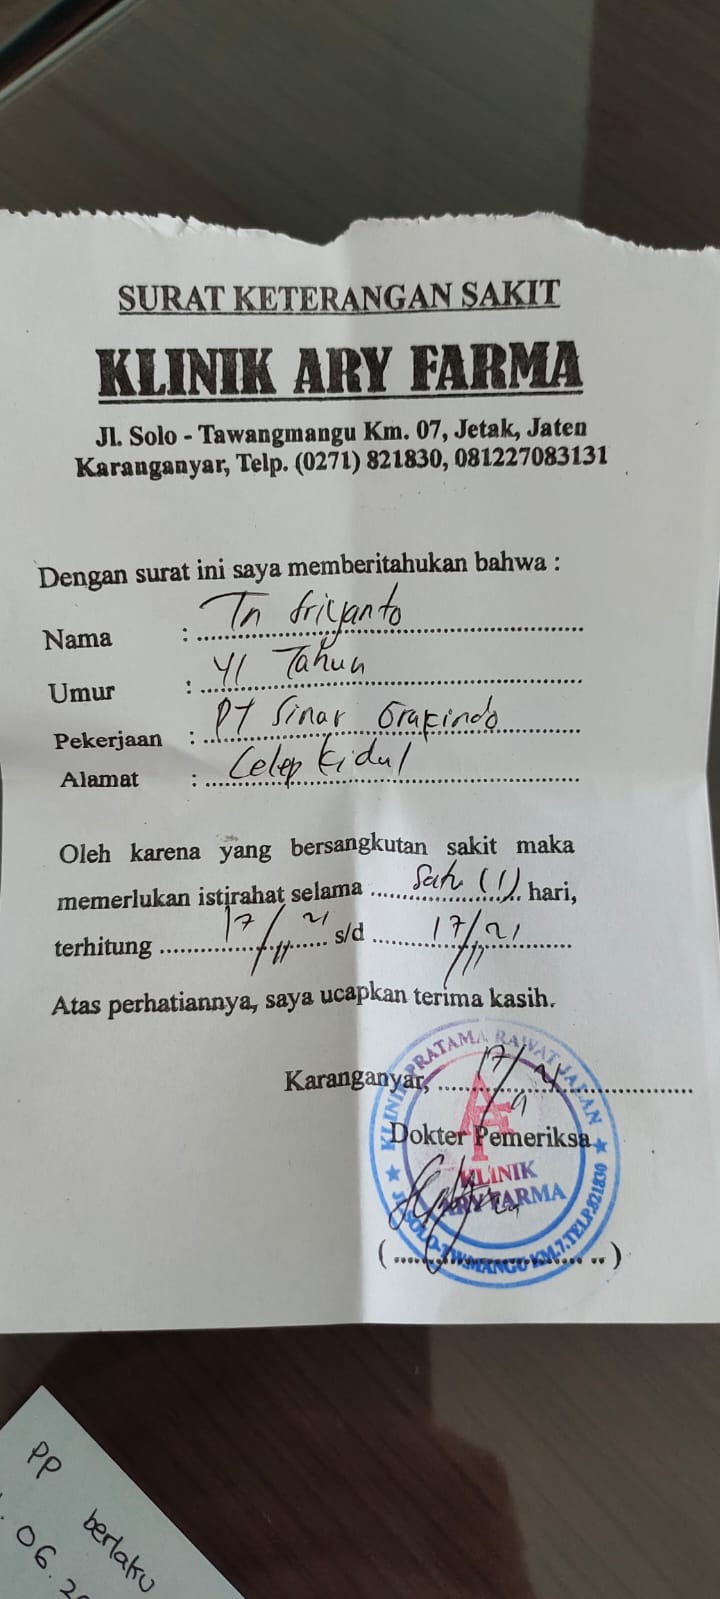 SURAT KETERANGAN SAKIT
KLINIK ARY FARMA
Jl. Solo - Tawangmangu Km. 07, Jetak, Jaten
Karanganyar, Telp. (0271) 821830, 081227083131
Dengan surat ini saya memberitahukan bahwa :
Nama : Tn Sriyanto
Umur : 41 Tahun
Pekerjaan : PT Sinar Grafindo
Alamat : Celep Kidul
Oleh karena yang bersangkutan sakit maka
memerlukan istirahat selama Satu (1) hari,
terhitung 17/11 21 s/d 17/11 21
Atas perhatiannya, saya ucapkan terima kasih.
Karanganyar, 17/
Dokter Pemeriksa
KLINIK PRATAMA RAWAT JALAN
KLINIK
ARY FARMA
JL.SOLO-TW.MANGU KM.7.TELP.821830
PP berlaku
06.